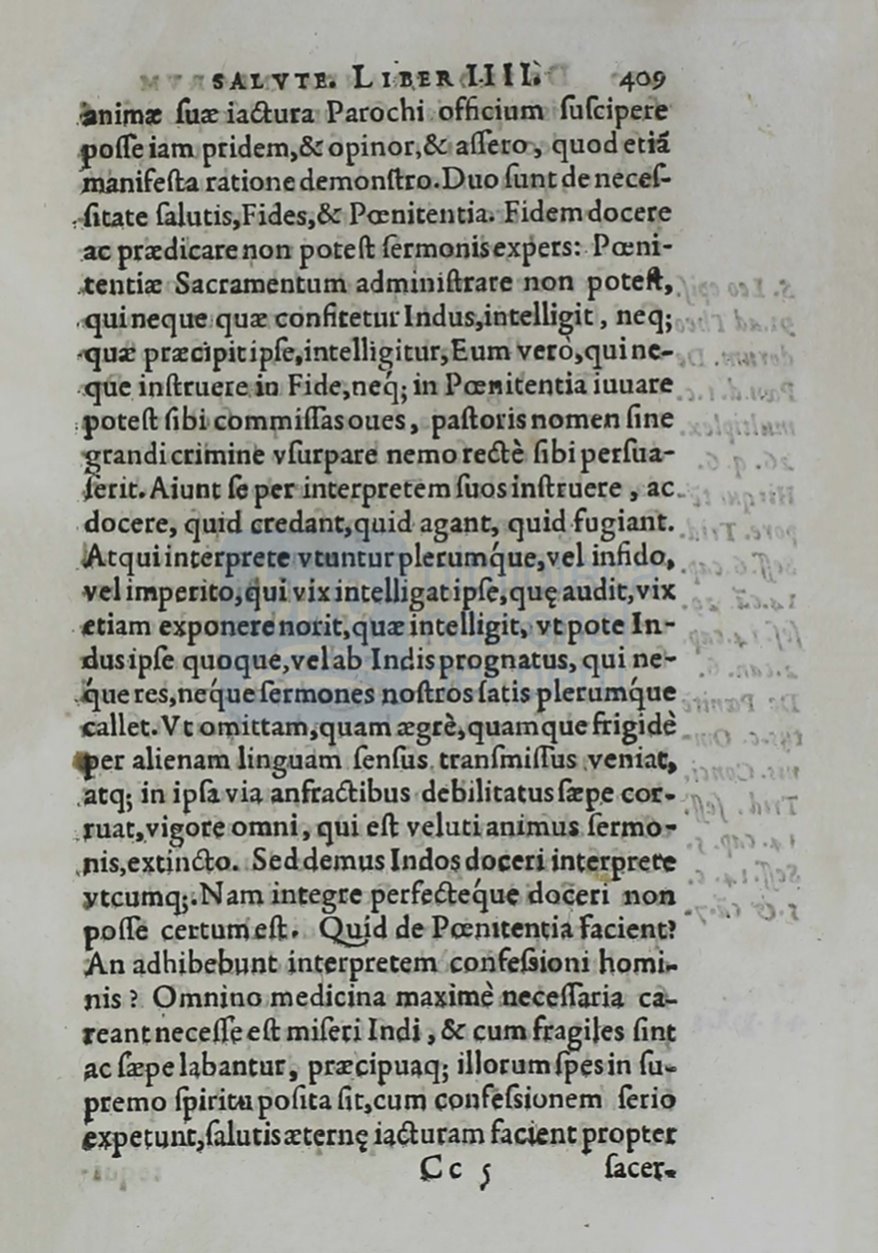 SALVTE. LIBER IIII. 409
animæ ſuæ iactura Parochi officium ſuſcipere
poſſe iam pridem,& opinor,& aſſero, quod etiã
manifeſta ratione demonſtro. Duo ſunt de neceſ-
ſitate ſalutis, Fides,& Pœnitentia. Fidem docere
ac prædicare non poteſt ſermonis expers: Pœni-
tentiæ Sacramentum adminiſtrare non poteſt,
qui neque quæ confitetur Indus, intelligit, neq;
quæ præcipit ipſe, intelligitur, Eum verò, qui ne-
que inſtruere in Fide, neq́; in Pœnitentia iuuare
poteſt ſibi commiſſas oues, paſtoris nomen ſine
grandi crimine vſurpare nemo rectè ſibi perſua-
ſerit. Aiunt ſe per interpretem ſuos inſtruere, ac
docere, quid credant, quid agant, quid fugiant.
Atqui interprete vtuntur plerumq́ue, vel infido,
vel imperito, qui vix intelligat ipſe, quę audit, vix
etiam exponere norit, quæ intelligit, vt pote In-
dus ipſe quoque, vel ab Indis prognatus, qui ne-
q́ue res, neq́ue ſermones noſtros ſatis plerumq́ue
callet. Vt omittam, quam ægrè, quamque frigidè
per alienam linguam ſenſus tranſmiſſus veniat,
atq; in ipſa via anfractibus debilitatus ſæpe cor-
ruat, vigore omni, qui eſt veluti animus ſermo-
nis, extincto. Sed demus Indos doceri interprete
vtcumq;. Nam integre perfecteq́ue doceri non
poſſe certum eſt. Quid de Pœnitentia facient?
An adhibebunt interpretem confeſsioni homi-
nis? Omnino medicina maximè neceſſaria ca-
reant neceſſe eſt miſeri Indi, & cum fragiles ſint
ac ſæpe labantur, præcipuaq; illorum ſpes in ſu-
premo ſpiritu poſita ſit, cum confeſsionem ſerio
expetunt, ſalutis æternę iacturam facient propter
Cc 5 ſacer-